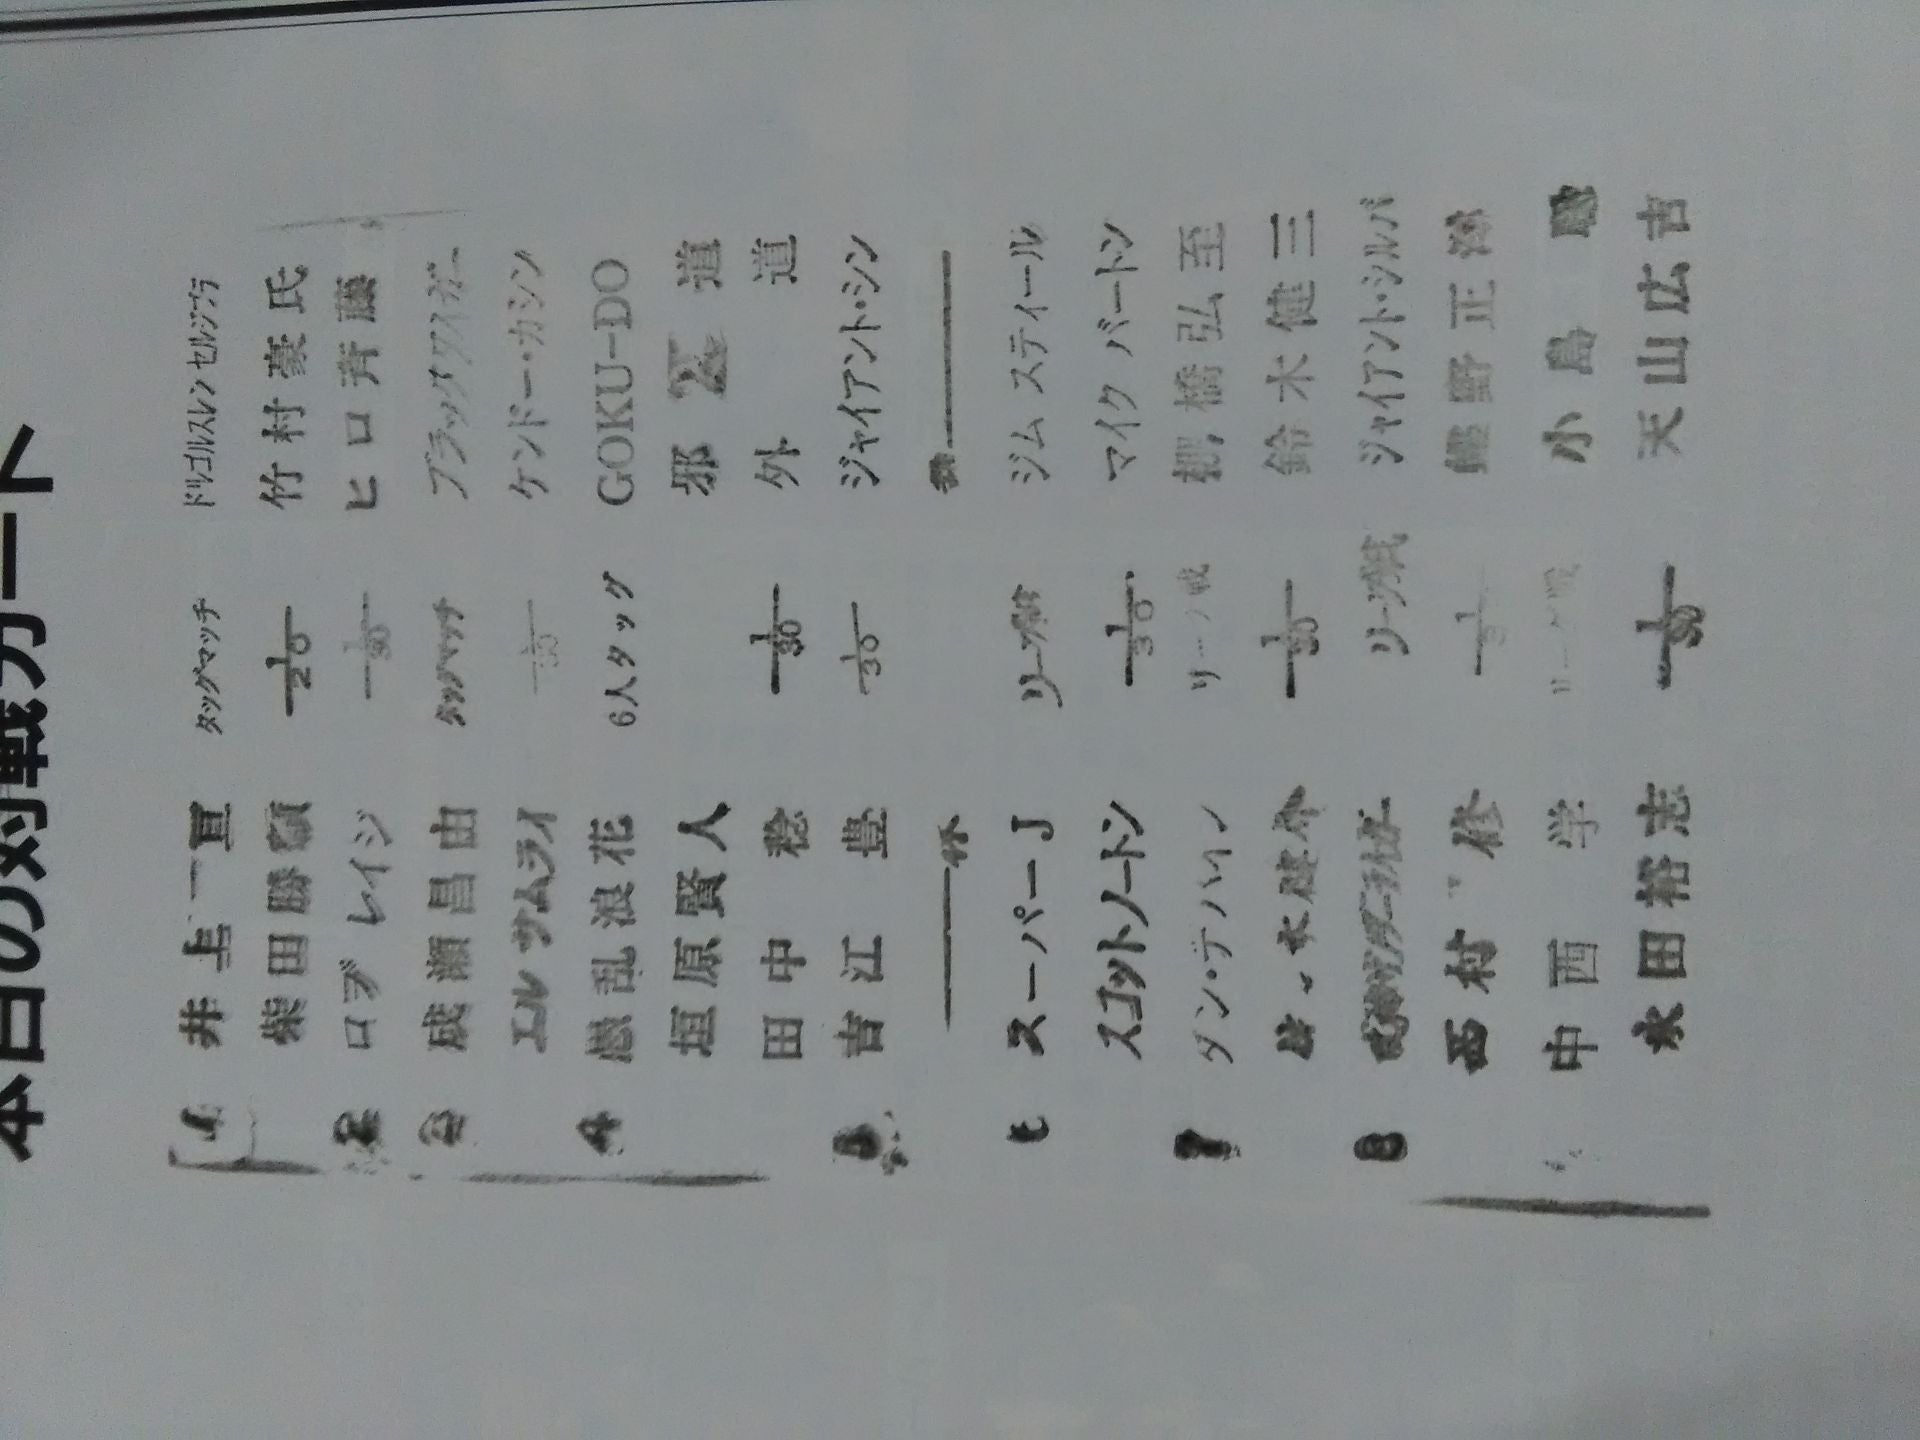 本日の対戦カード
1 井上亘 タッグマッチ ドルゴルスレン セルジブデ
柴田勝頼 1/20 竹村豪氏
2 ロブ レイジ 1/30 ヒロ斉藤
3 成瀬昌由 タッグマッチ ブラックタイガー
エル サムライ 1/30 ケンドー・カシン
4 愚乱浪花 6人タッグ GOKU-DO
垣原賢人 邪道
田中稔 1/30 外道
5 吉江豊 1/30 ジャイアント・シン
休
スーパーJ リーグ戦 ジム スティール
スコットノートン 1/30 マイク バートン
7 ダン・デバイン リーグ戦 棚橋弘至
佐々木健介 1/30 鈴木健三
8 リーグ戦 ジャイアント・シルバ
西村修 蝶野正洋
中西学 リーグ戦 小島聡
永田裕志 1/30 天山広吉